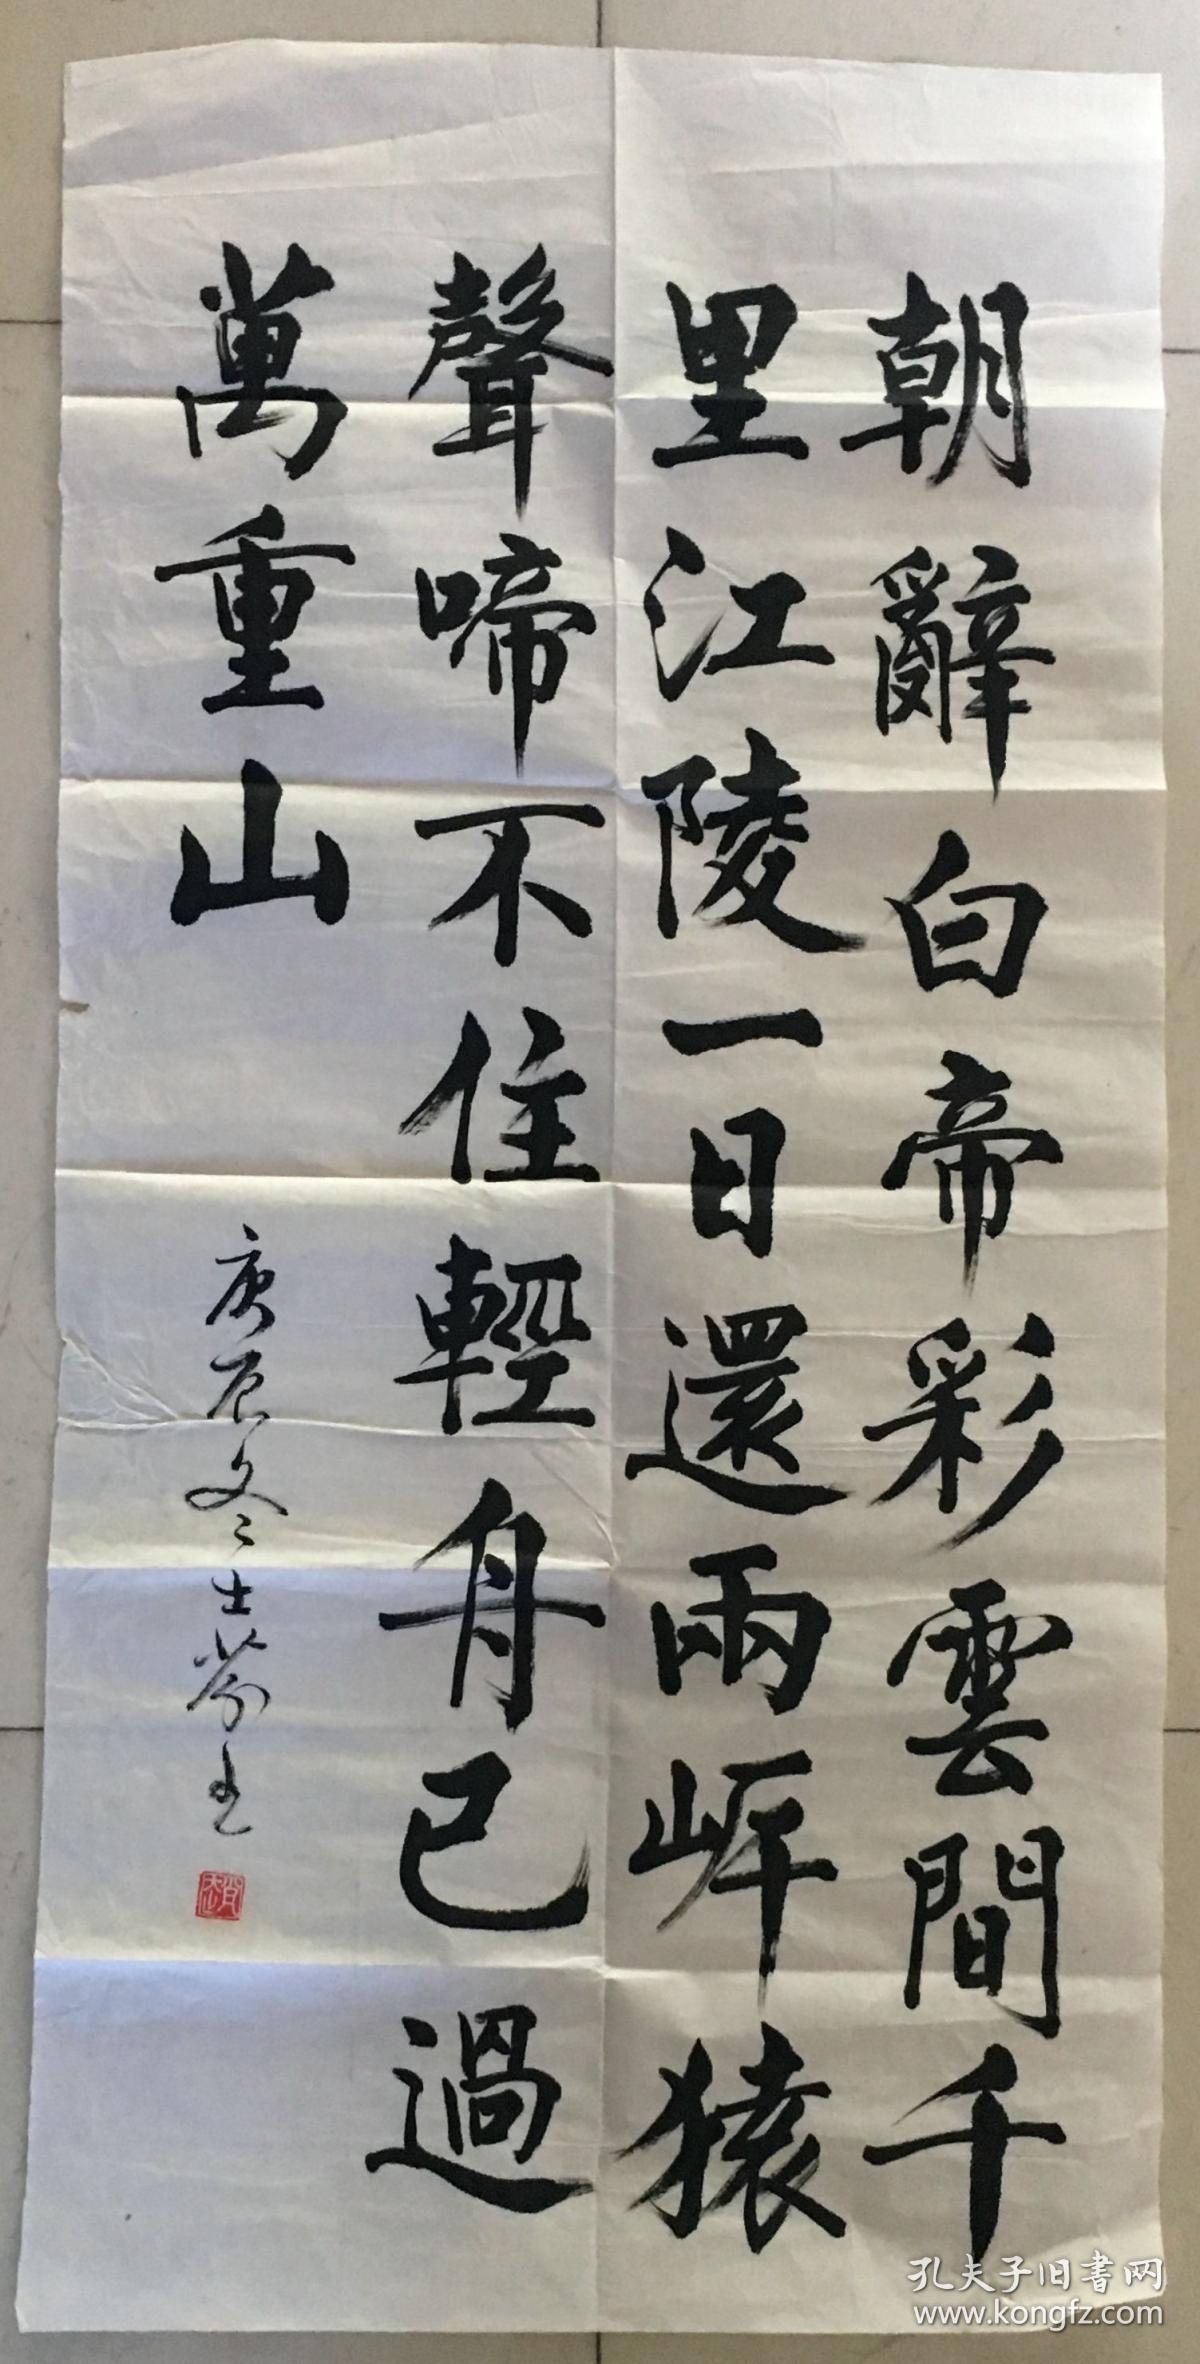 朝辭白帝彩雲間千
里江陵一日還兩岸猿
聲啼不住輕舟已過
萬重山
庚辰冬士芬书
孔夫子旧書网
www.kongfz.com